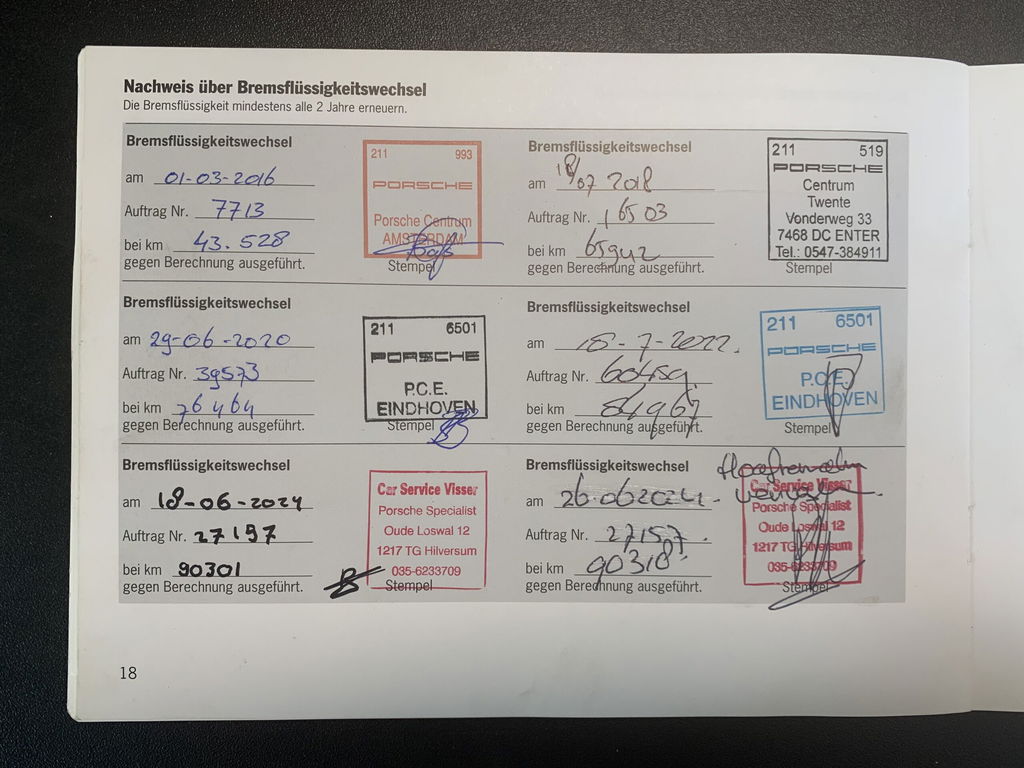 Nachweis über Bremsflüssigkeitswechsel
Die Bremsflüssigkeit mindestens alle 2 Jahre erneuern.
Bremsflüssigkeitswechsel
am 01-03-2016
Auftrag Nr. 7713
bei km 43.528
gegen Berechnung ausgeführt.
211 993
PORSCHE
Porsche Centrum
AMSTERDAM
Stempel
Bremsflüssigkeitswechsel
am 18/07 2018
Auftrag Nr. 16503
bei km 65942
gegen Berechnung ausgeführt.
211 519
PORSCHE
Centrum
Twente
Vonderweg 33
7468 DC ENTER
Tel.: 0547-384911
Stempel
Bremsflüssigkeitswechsel
am 29-06-2020
Auftrag Nr. 39573
bei km 76464
gegen Berechnung ausgeführt.
211 6501
PORSCHE
P.C.E.
EINDHOVEN
Stempel
Bremsflüssigkeitswechsel
am 18-7-2022.
Auftrag Nr.
bei km 84967
gegen Berechnung ausgeführt.
211 6501
PORSCHE
P.C.E.
EINDHOVEN
Stempel
Bremsflüssigkeitswechsel
am 18-06-2024
Auftrag Nr. 27197
bei km 90301
gegen Berechnung ausgeführt.
Car Service Visser
Porsche Specialist
Oude Loswal 12
1217 TG Hilversum
035-6233709
Stempel
Bremsflüssigkeitswechsel
am 26.062024.
Auftrag Nr. 27157.
bei km 90318.
gegen Berechnung ausgeführt.
Car Service Visser
Porsche Specialist
Oude Loswal 12
1217 TG Hilversum
035-6233709
Stempel
18